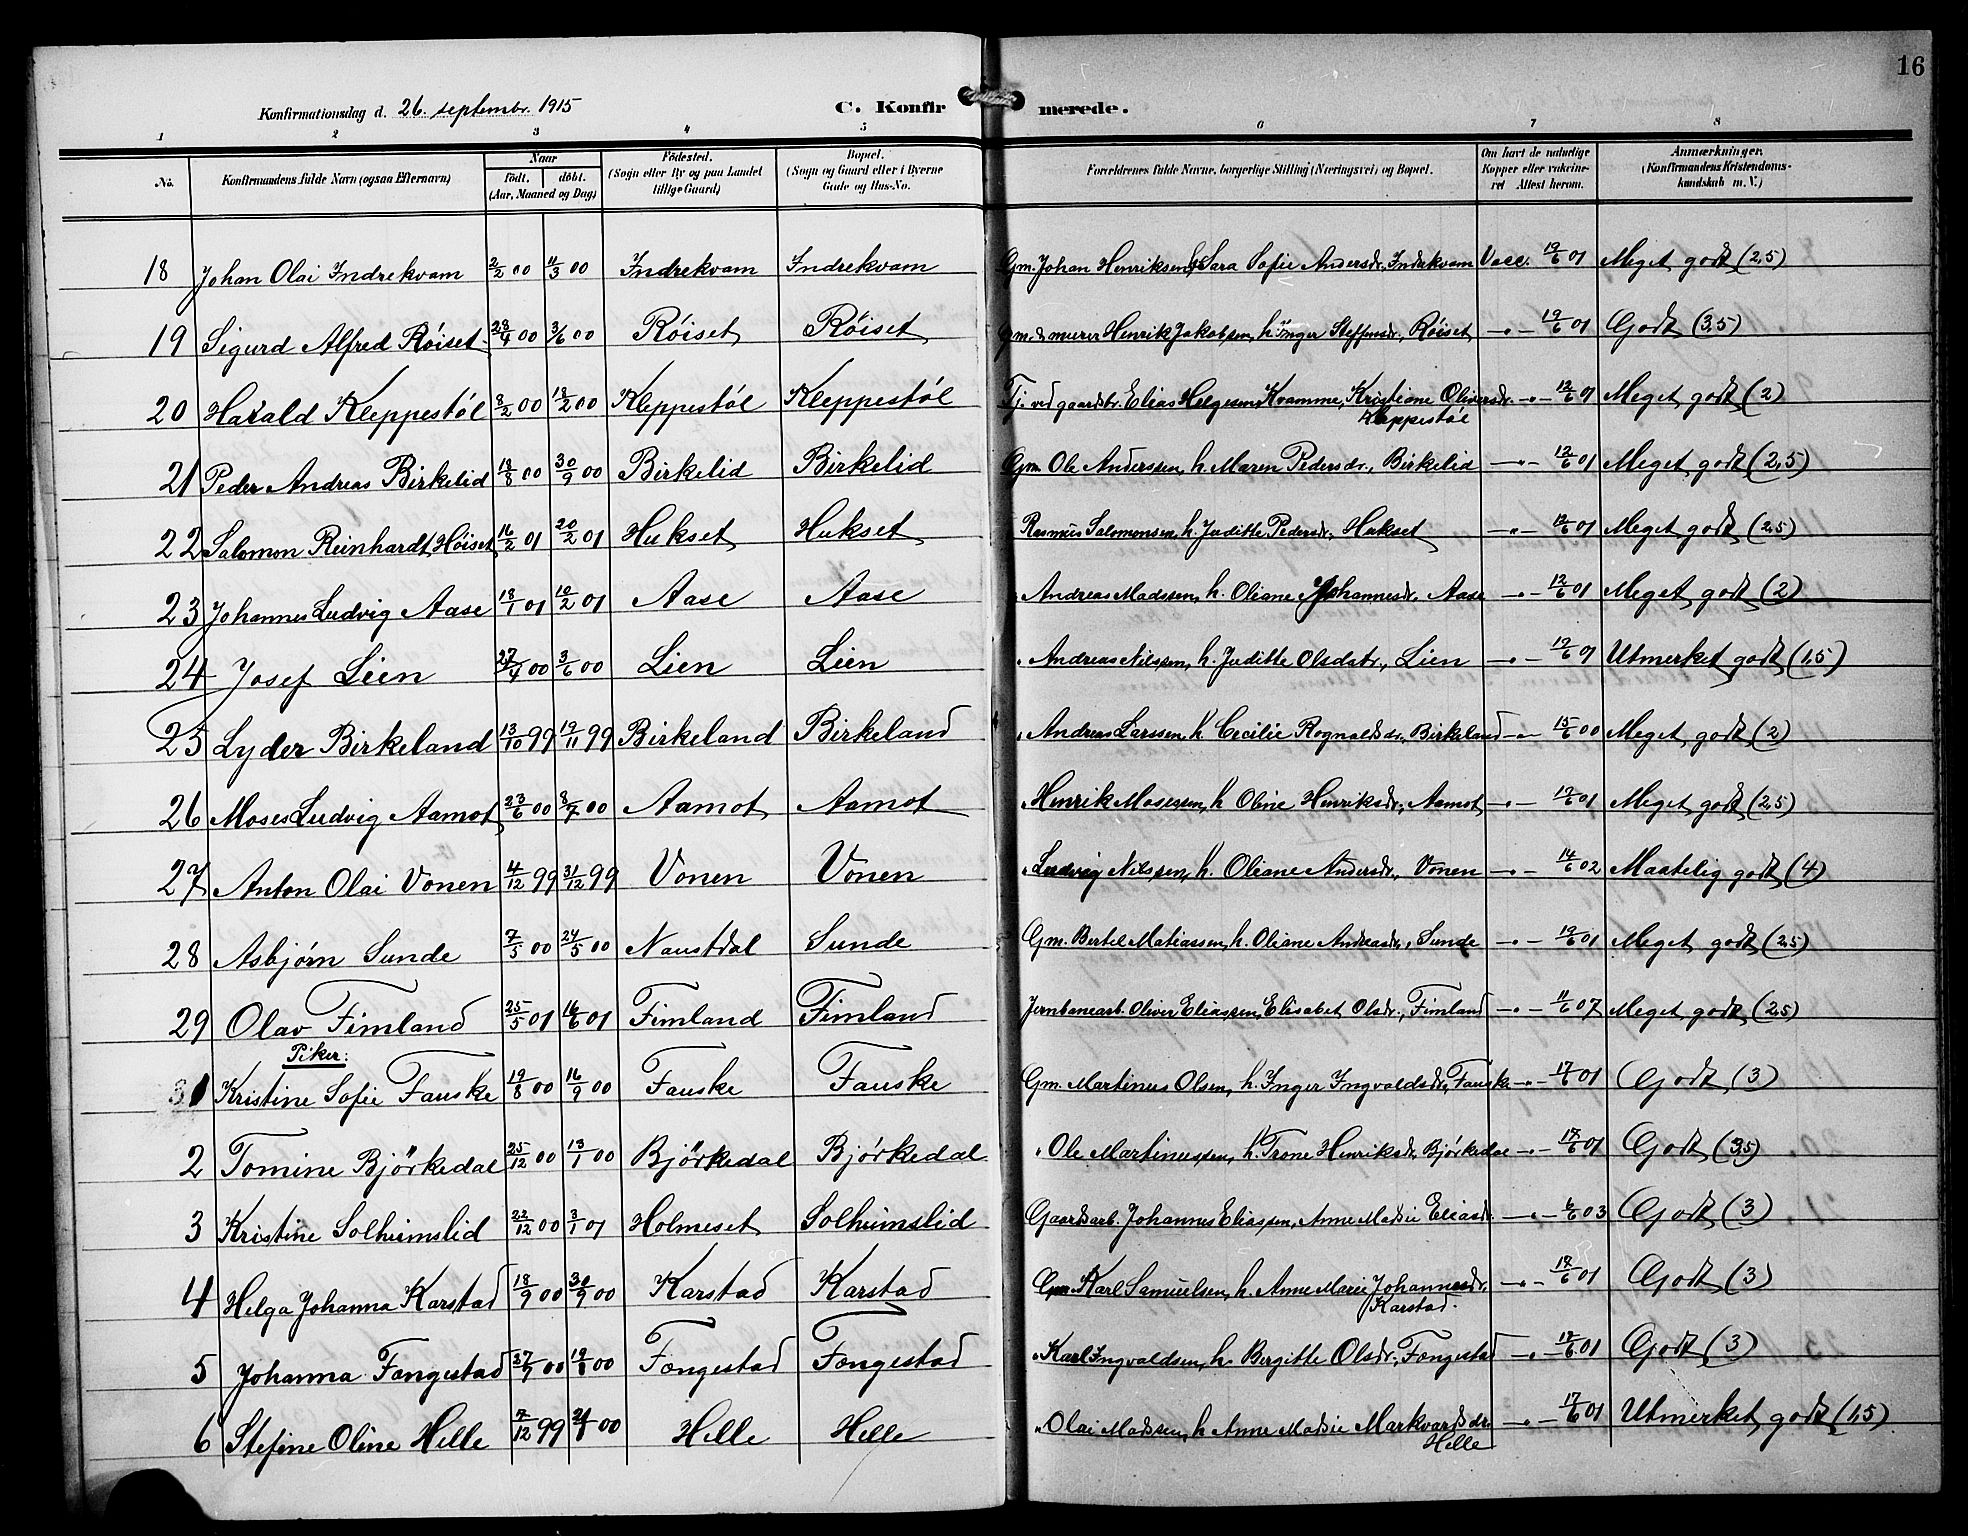 16
Konfirmationsdag d. 26. septembr. 1915 C. Konfirmerede.
1 2 3 4 5 6 7 8
No. Konfirmandens fulde Navn (ogsaa Efternavn) Naar födt. döbt. (Aar, Maaned og Dag) Födested. (Sogn eller By og paa Landet tillige Gaard) Bopæl. (Sogn og Gaard eller i Byerne Gade og Hus-No. Forældrenes fulde Navne, borgerlige Stilling (Næringsvei) og Bopæl. Om havt de naturlige Kopper eller vakcineret Attest herom. Anmærkninger. (Konfirmandens Kristendomskundskab m. V.)
18 Johan Olai Indrekvam 2/2 00 11/3 00 Indrekvam Indrekvam Gm. Johan Henriksen, Sara Sofie Andersdr. Indrekvam Vacc. 19/6 01 Meget godt (2,5)
19 Sigurd Alfred Röiset 28/4 00 3/6 00 Röiset Röiset Gm. & murer Henrik Jakobsen, h. Inger Steffensdr., Röiset -"- 19/6 01 Godt (3,5)
20 Harald Kleppestöl 8/2 00 18/2 00 Kleppestöl Kleppestöl Tj. ved gaardsbr. Elias Helgesen Kvamme, Kristiane Oliversdr. Kleppestöl -"- 12/6 01 Meget godt (2)
21 Peder Andreas Birkelid 18/8 00 30/9 00 Birkelid Birkelid Gm. Ole Anderssen, h. Maren Pedersdr., Birkelid -"- 12/6 01 Meget godt (2,5)
22 Salomon Reinhardt Höiset 16/2 01 20/2 01 Hukset Hukset Rasmus Salomonsen, h. Juditte Pedersdr., Hukset -"- 12/6 01 Meget godt (2,5)
23 Johannes Ludvig Aase 18/1 01 10/2 01 Aase Aase " Andreas Madssen, h. Oliane Johannesdr., Aase -"- 12/6 01 Meget godt (2)
24 Josef Lien 27/4 00 3/6 00 Lien Lien " Andreas Nilssen, h. Juditte Olsdatr., Lien -"- 19/6 01 Utmerket godt (1,5)
25 Lyder Birkeland 13/10 99 19/11 99 Birkeland Birkeland " Andreas Larssen, h. Cecilie Rognaldsdr., Birkeland -"- 15/6 00 Meget godt (2)
26 Moses Ludvig Aamot 23/6 00 8/7 00 Aamot Aamot " Henrik Mosessen, h. Oline Henriksdr., Aamot -"- 19/6 01 Meget godt (2,5)
27 Anton Olai Vonen 4/12 99 31/12 99 Vonen Vonen " Ludvig Nilssen, h. Oliane Andersdr., Vonen -"- 14/6 02 Maatelig godt (4)
28 Asbjørn Sunde 7/5 00 24/5 00 Naustdal Sunde Gm. Bertel Matiassen, h. Oliane Andreasdr., Sunde -"- 19/6 01 Meget godt (2,5)
29 Olav Fimland 25/5 01 16/6 01 Fimland Fimland Jernbanearb. Oliver Eliassen, Elisabet Olsdr., Fimland -"- 11/6 07 Meget godt (2,5)
Piker:
1 Kristine Sofie Fauske 19/8 00 16/9 00 Fauske Fauske Gm. Martinus Olsen, h. Inger Ingvaldsdr., Fauske -"- 17/6 01 Godt (3)
2 Tomine Björkedal 25/12 00 13/1 00 Björkedal Björkedal " Ole Martinussen, h. Trone Henriksdr., Björkedal -"- 18/6 01 Godt (3,5)
3 Kristine Solheimslid 22/12 00 3/1 01 Holmeset Solheimslid Gaardsarb. Johannes Eliassen, Anne Madsie Eliasdr. -"- 6/6 03 Godt (3)
4 Helga Johanna Karstad 18/9 00 30/9 00 Karstad Karstad Gm. Karl Samuelsen, h. Anne Marie Johannesdr. Karstad. -"- 18/6 01 Godt (3)
5 Johanna Fongestad 27/7 00 19/8 00 Fongestad Fongestad " Karl Ingvaldsen, h. Bergitte Olsdr., Fongestad -"- 18/6 01 Godt (3)
6 Stefine Oline Helle 7/12 99 00 Helle Helle " Olai Madssen, h. Anne Madsie Markvardsdr. Helle -"- 17/6 01 Utmerket godt (1,5)